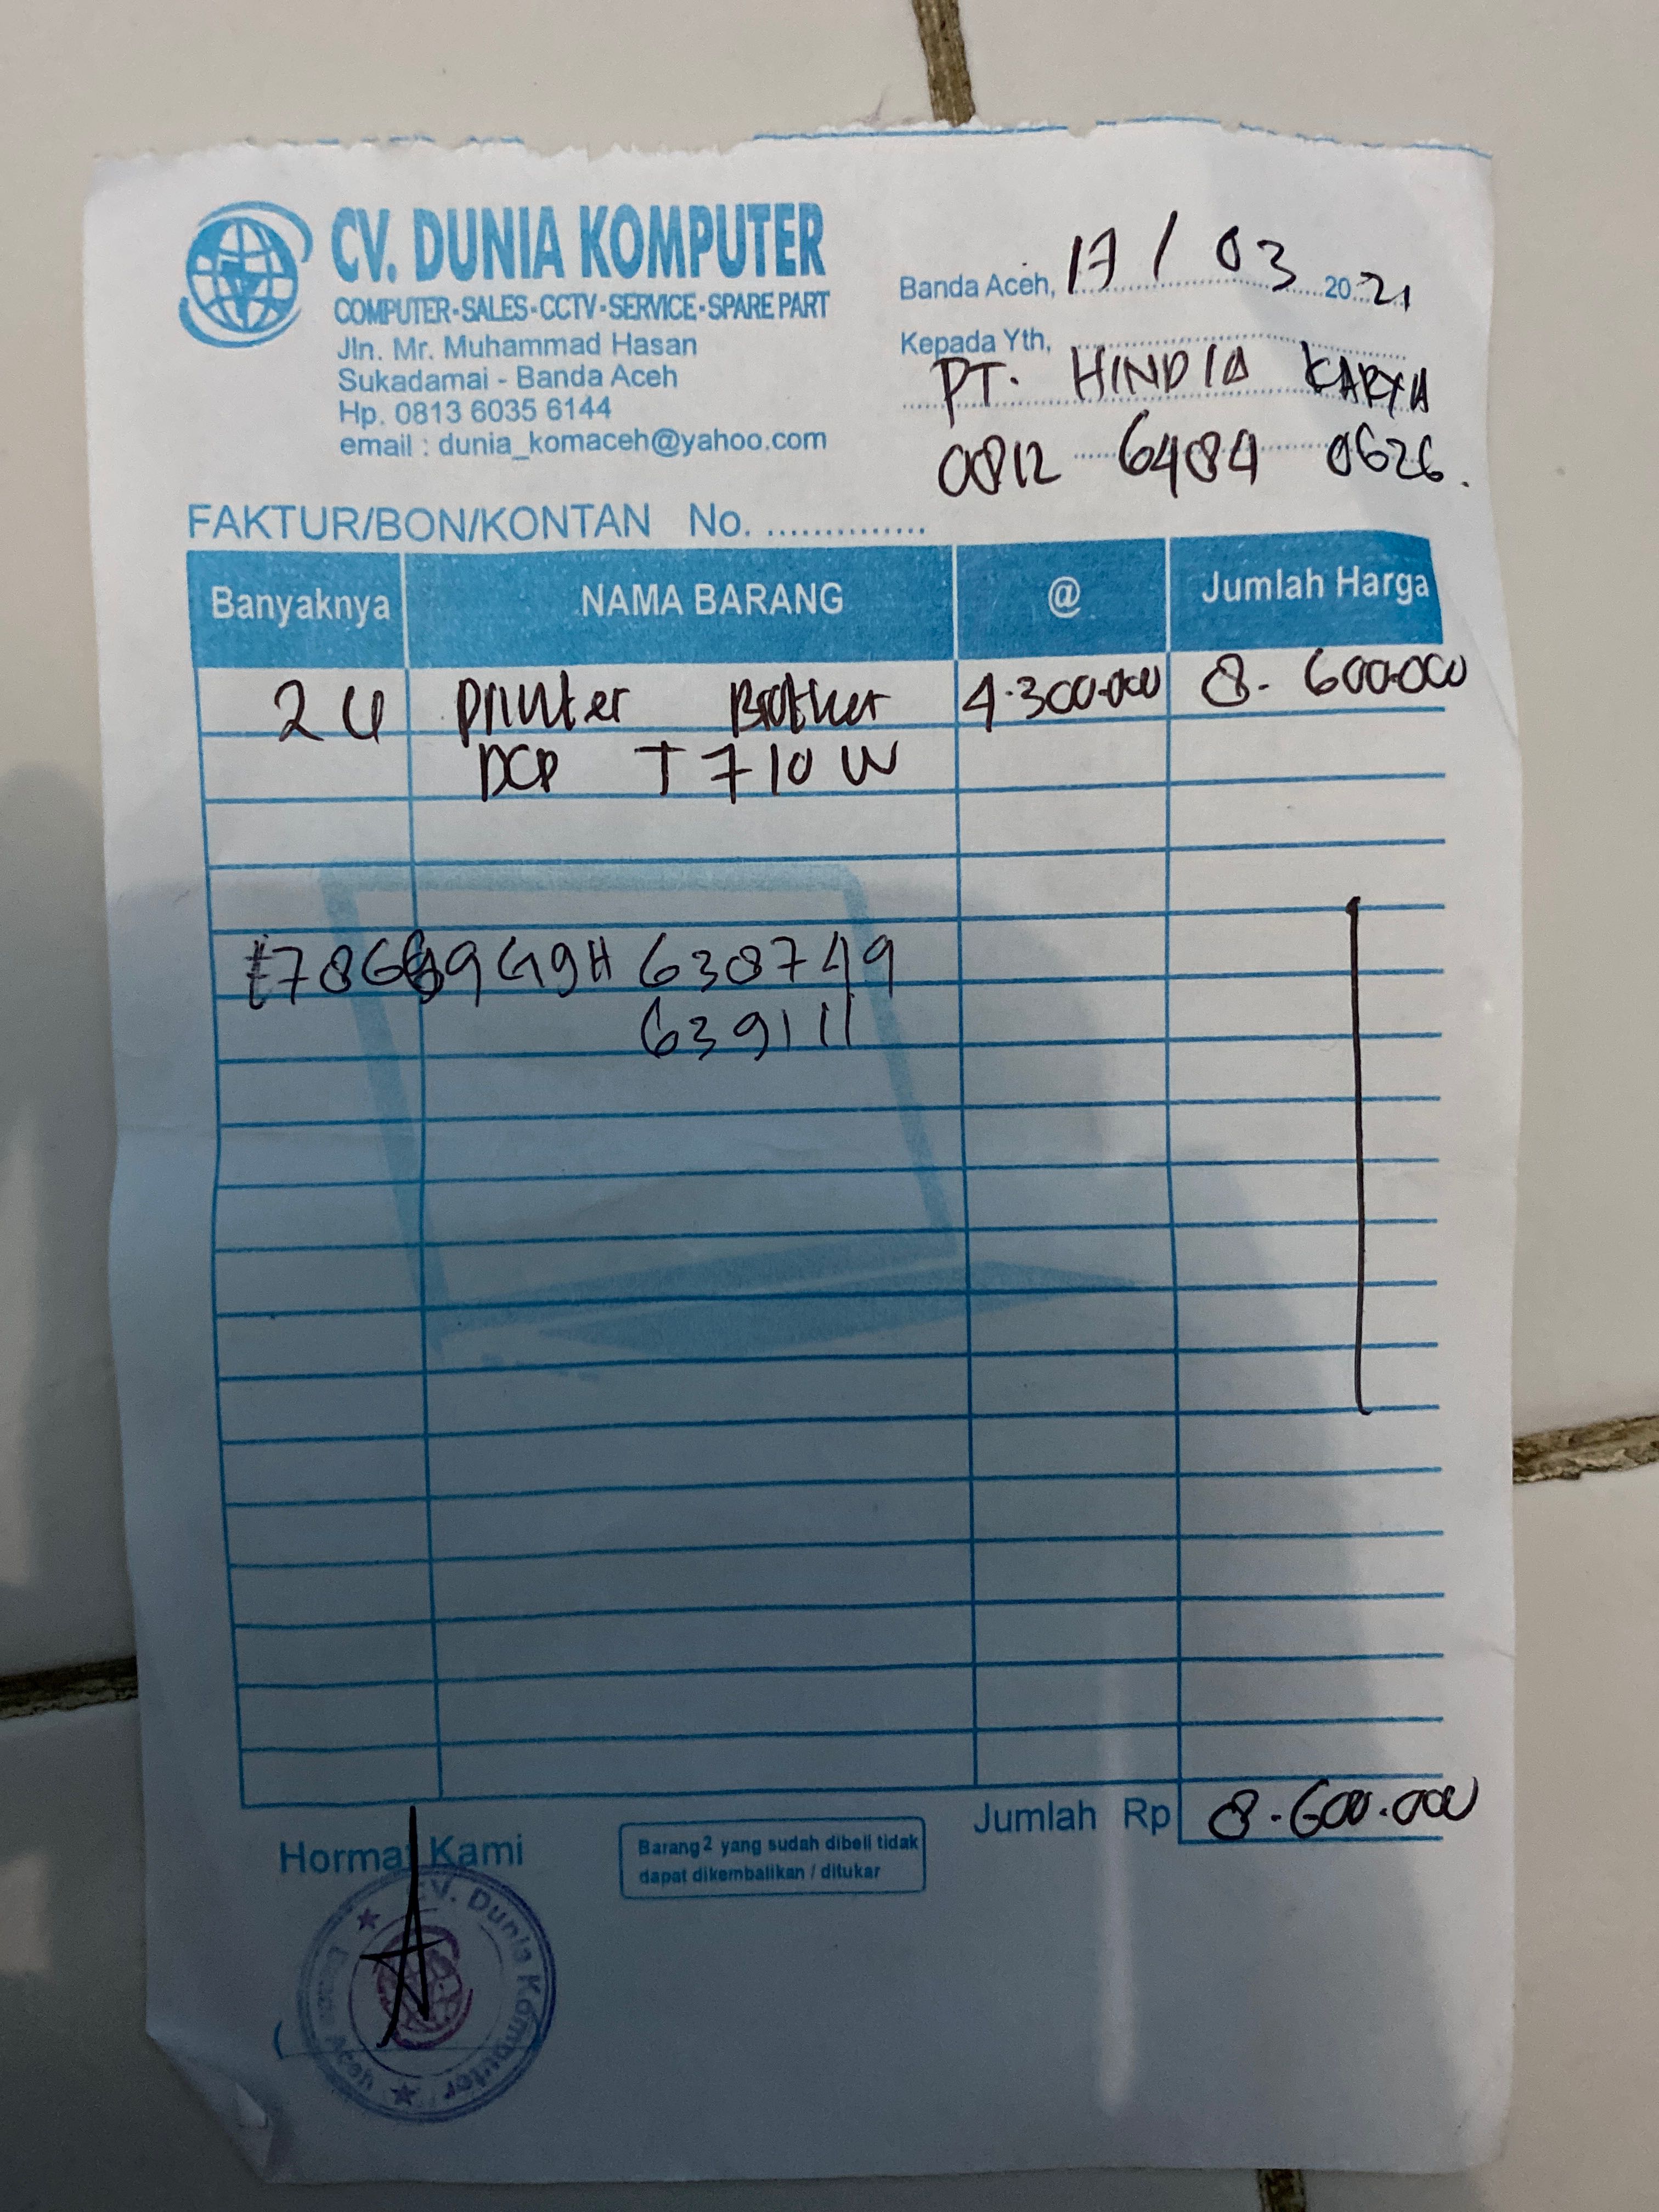 CV. DUNIA KOMPUTER
COMPUTER - SALES - CCTV - SERVICE - SPARE PART
Jln. Mr. Muhammad Hasan
Sukadamai - Banda Aceh
Hp. 0813 6035 6144
email : dunia_komaceh@yahoo.com
Banda Aceh, 17 / 03 2021
Kepada Yth,
PT. HINDIA KARYA
0812 6484 0626.
FAKTUR/BON/KONTAN No. ..............
Banyaknya NAMA BARANG @ Jumlah Harga
2 U Printer Brother 4.300.000 8.600.000
DCP T710W
G9H 638749
639111
Jumlah Rp 8.600.000
Hormat Kami
Barang2 yang sudah dibeli tidak
dapat dikembalikan / ditukar
CV. Dunia Komputer
Banda Aceh